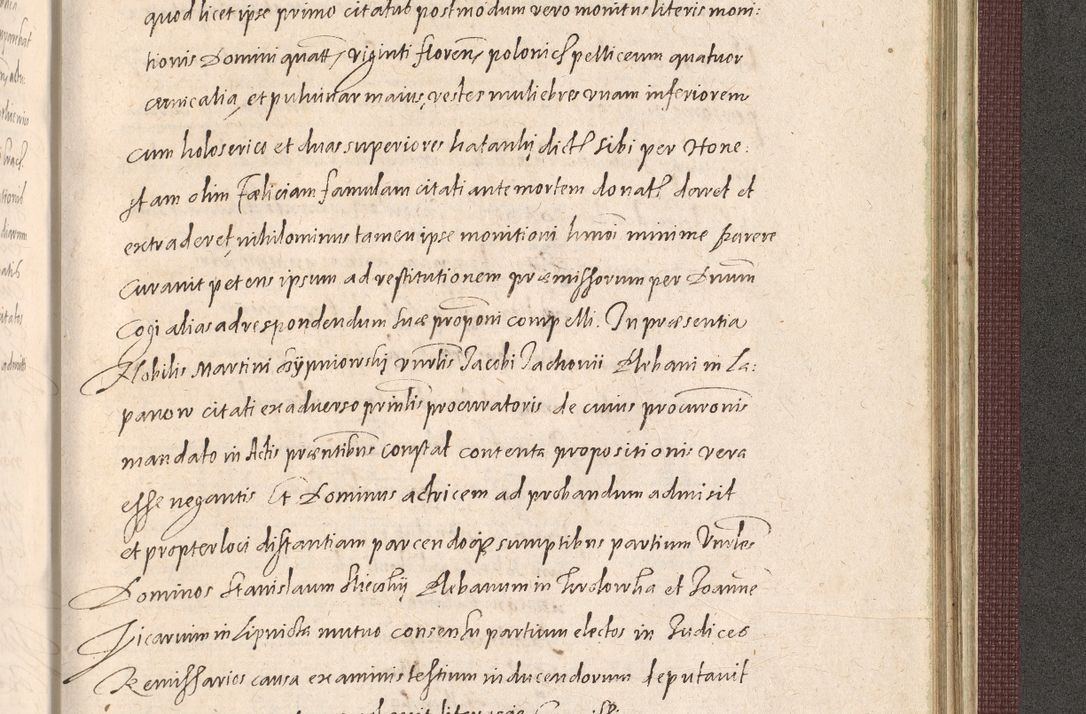 quod licet ipse primo citatus postmodum vero monitus literis moni:
tionis Domini quatt, viginti floren, polonicł pelliceum quatuor
cervicalia, et puluinar maius, vestes muliebres vnam inferiorem
cum holoserico et duas superiores hatanlij dictł sibi per Hone:
stam olim Fæliciam famulam citati ante mortem donatł daret et
extraderet, nihilominus tamen ipse monitioni hmoi minime parere
curauit petens ipsum ad restitutionem præmissorum per Dnum
cogi alias ad respondendum suæ proponi compelli. In præsentia
Nobilis Martini Szÿmniowskij vnrlis Jacobi Jachonii Plebani in La:
panow citati ex aduerso prinlis procuratoris de cuius procuronis
mandato in Actis præntibus constat contenta propositionis vera
esse negantis Et Dominus actricem ad probandum admisit
et propter loci distantiam parcendoq sumptibus partium Vnrles
Dominos Stanislaum Plebanum in et Joanne
Vicarium in Lipnicka mutuo consensu partium electos in Judices
Remissarios causa examinis testium inducendorum deputauit